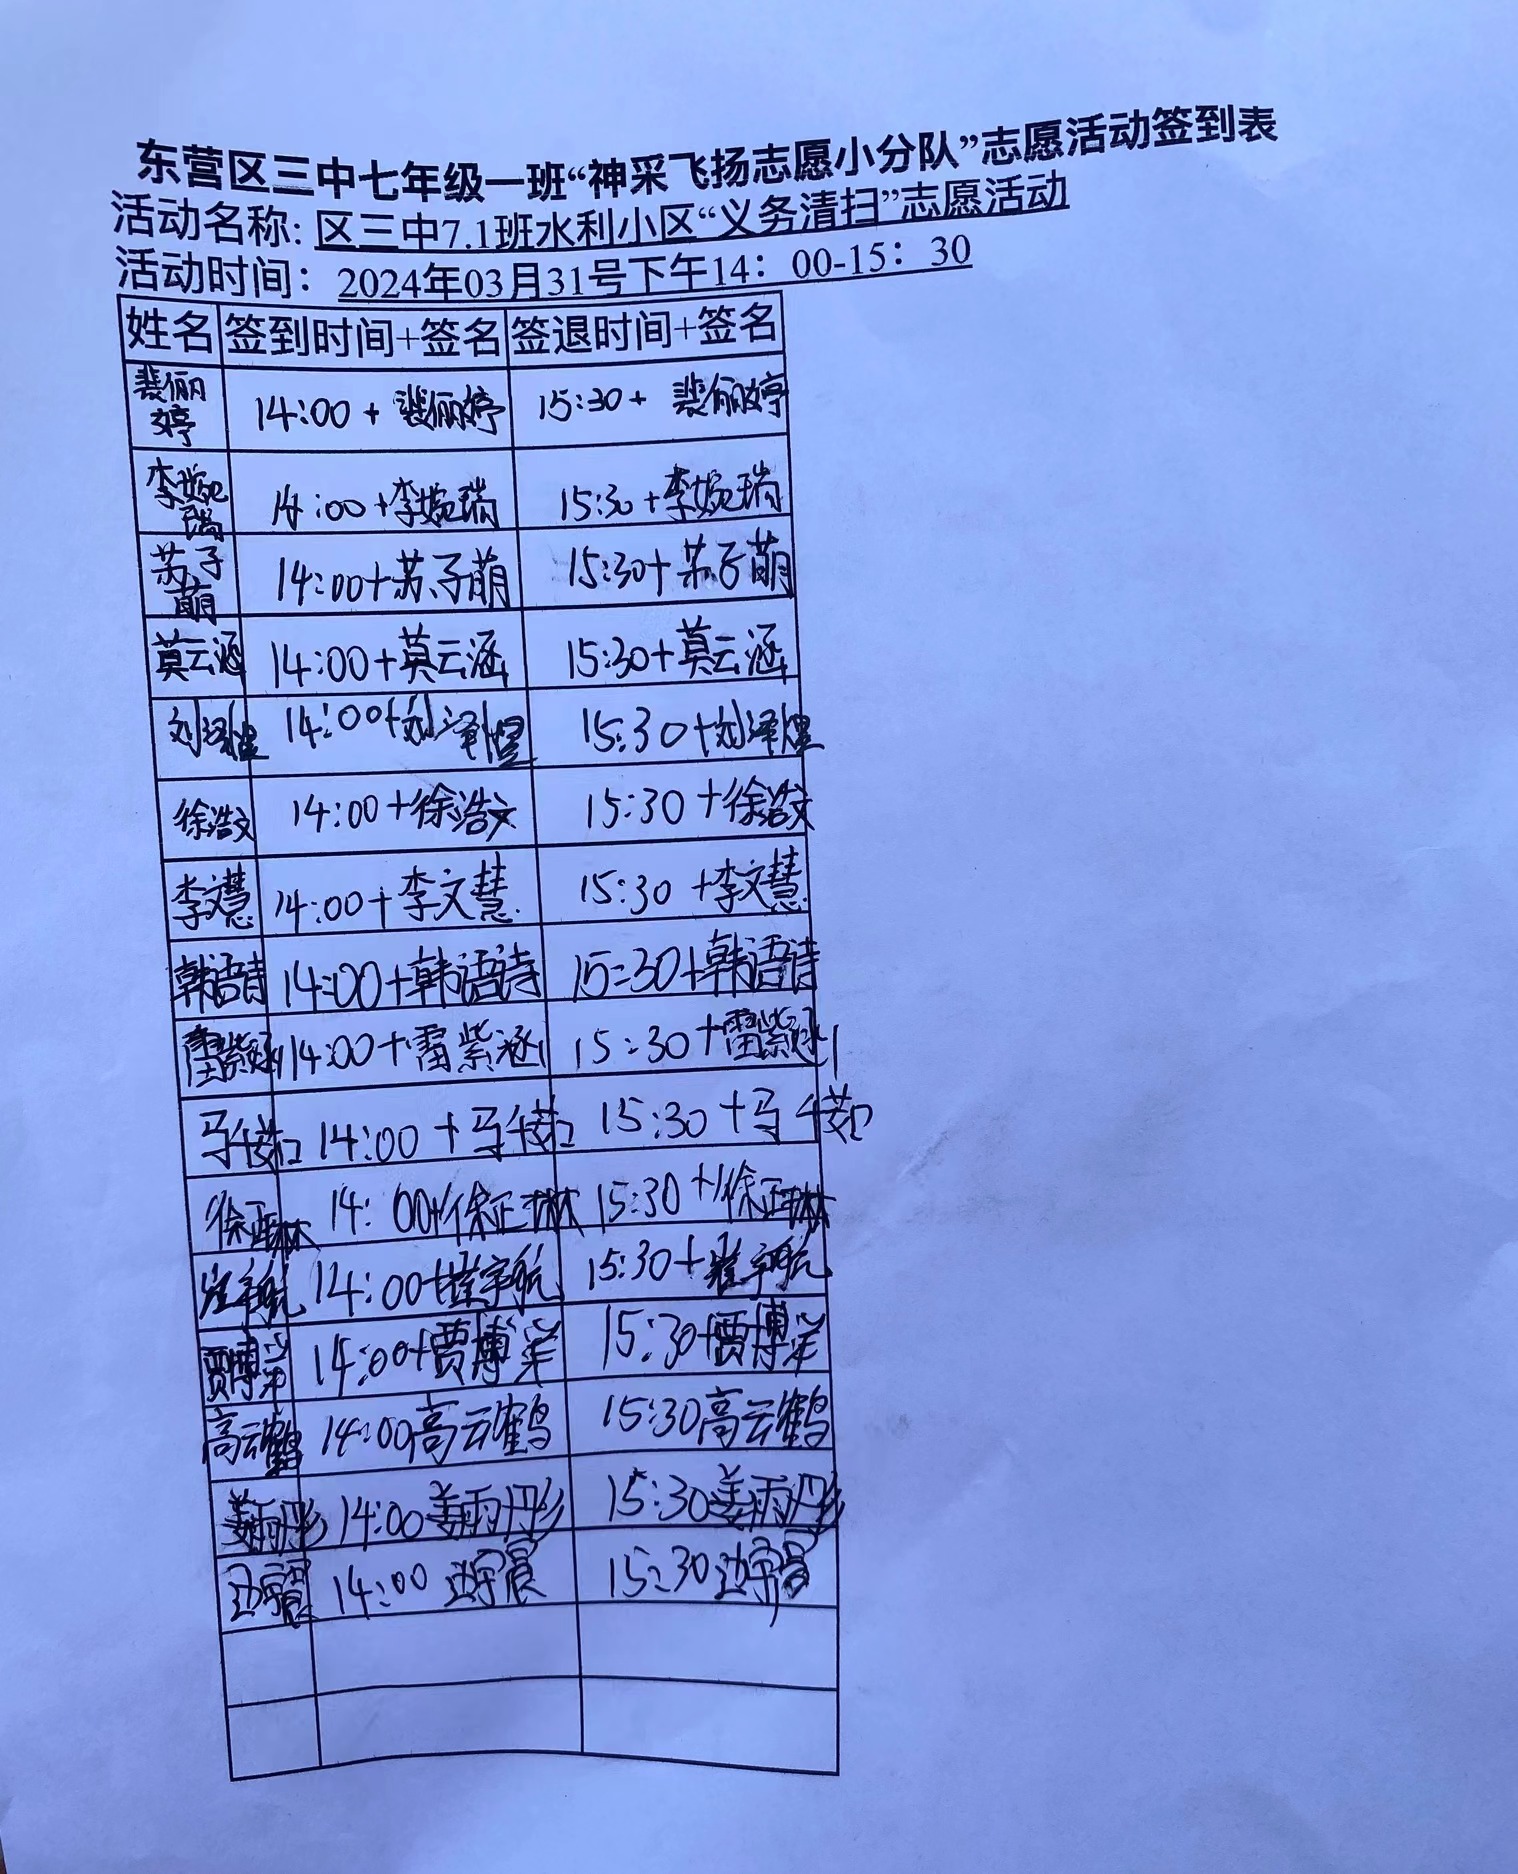 东营区三中七年级一班“神采飞扬志愿小分队”志愿活动签到表
活动名称: 区三中7.1班水利小区“义务清扫”志愿活动
活动时间：2024年03月31号下午14：00-15：30
姓名 签到时间+签名 签退时间+签名
裴俪婷 14:00 + 裴俪婷 15:30 + 裴俪婷
李婉瑞 14:00 + 李婉瑞 15:30 + 李婉瑞
苏子萌 14:00+苏子萌 15:30+苏子萌
莫云涵 14:00+莫云涵 15:30+莫云涵
刘泽煜 14:00+刘泽煜 15:30+刘泽煜
徐浩文 14:00+徐浩文 15:30+徐浩文
李文慧 14:00+李文慧 15:30+李文慧
韩语诗 14:00+韩语诗 15:30+韩语诗
雷紫涵 14:00+雷紫涵 15:30+雷紫涵
马千茹 14:00+马千茹 15:30+马千茹
徐正琳 14:00+徐正琳 15:30+徐正琳
崔宇航 14:00+崔宇航 15:30+崔宇航
贾博 14:00+贾博 15:30+贾博
高云鹤 14:00高云鹤 15:30高云鹤
姜雨彤 14:00姜雨彤 15:30姜雨彤
边宇晨 14:00 边宇晨 15:30边宇晨